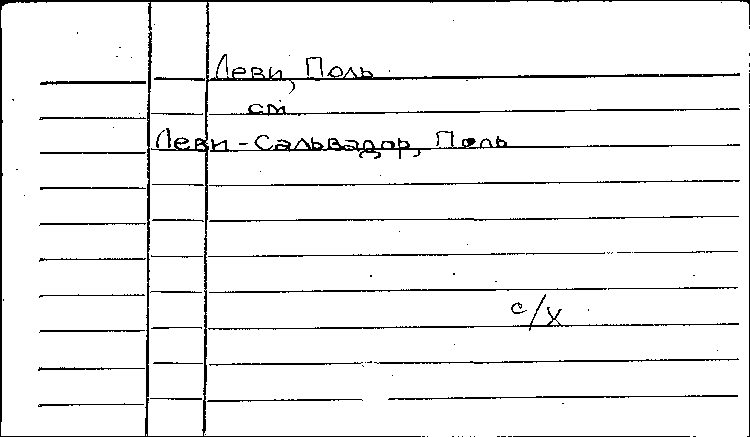 Леви, Поль
см
Леви-Сальвадор, Поль
с/х